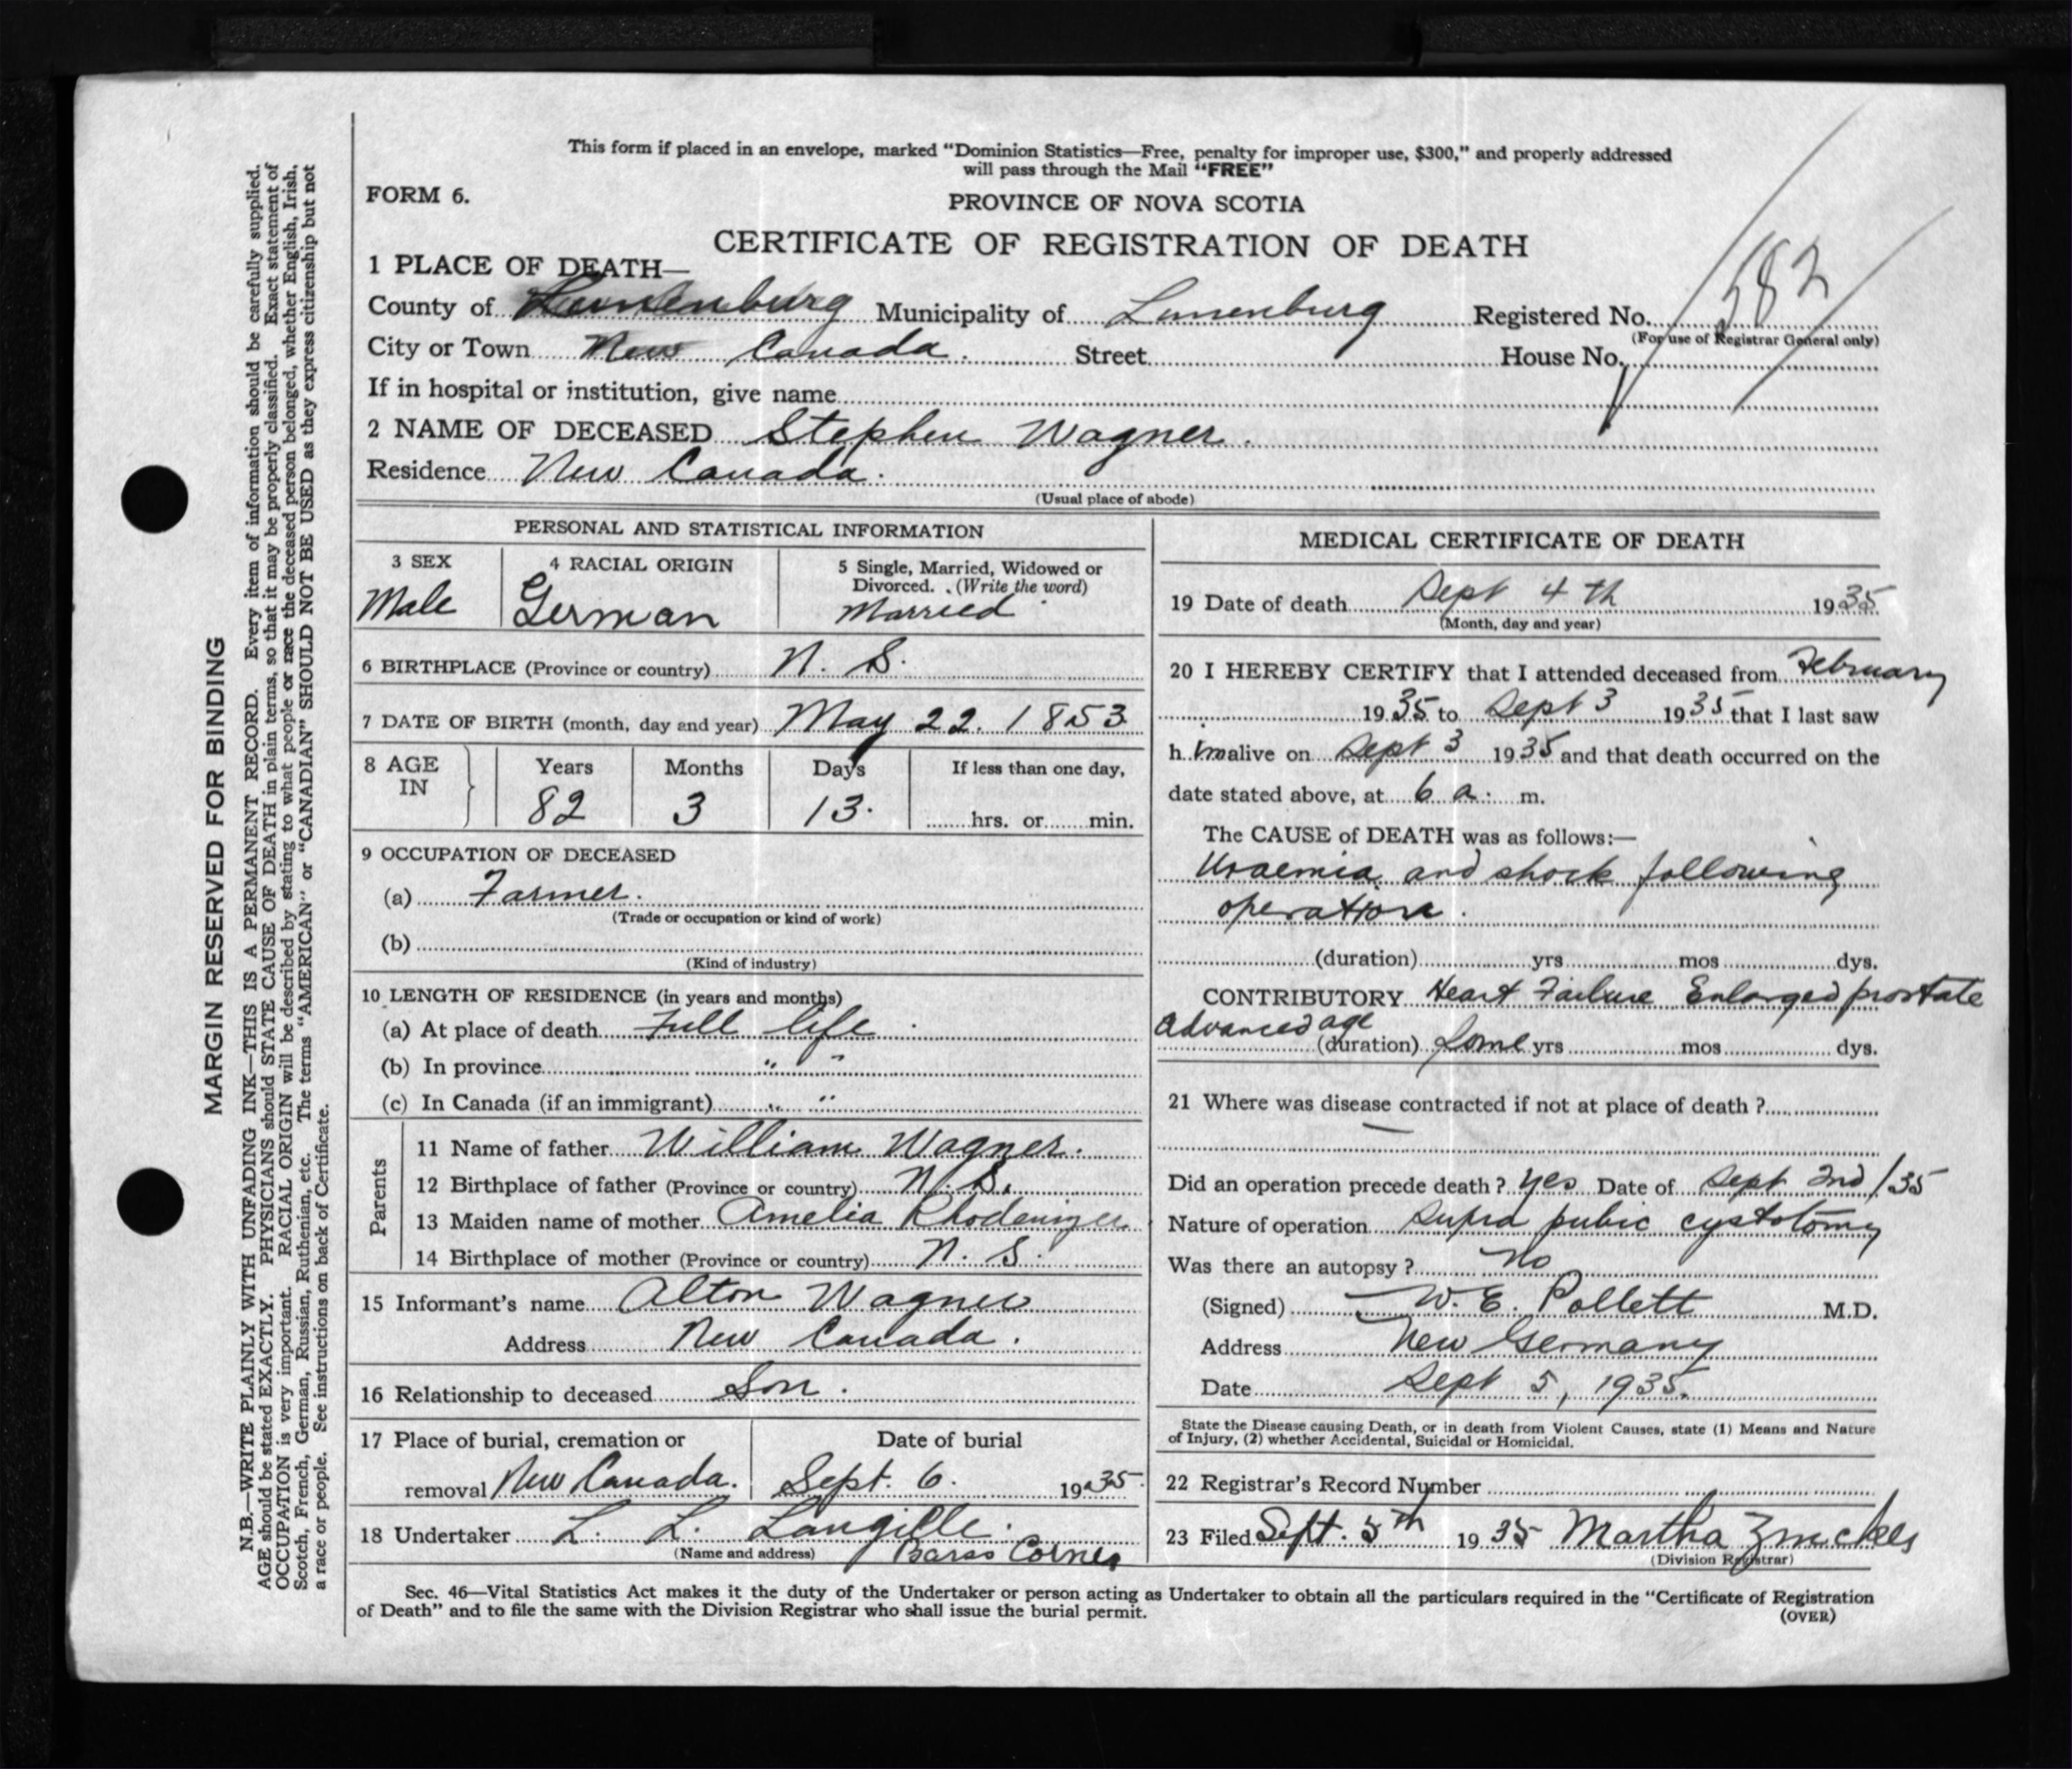 This form if placed in an envelope, marked "Dominion Statistics—Free, penalty for improper use, $300," and properly addressed
will pass through the Mail "FREE"
FORM 6.
PROVINCE OF NOVA SCOTIA
CERTIFICATE OF REGISTRATION OF DEATH
1 PLACE OF DEATH—
County of Lunenburg Municipality of Lunenburg Registered No. 582
(For use of Registrar General only)
City or Town New Canada. Street House No.
If in hospital or institution, give name
2 NAME OF DECEASED Stephen Wagner.
Residence New Canada.
(Usual place of abode)
PERSONAL AND STATISTICAL INFORMATION
3 SEX 4 RACIAL ORIGIN 5 Single, Married, Widowed or
Divorced. (Write the word)
Male German Married
6 BIRTHPLACE (Province or country) N. S.
7 DATE OF BIRTH (month, day and year) May 22. 1853
8 AGE IN Years Months Days If less than one day,
82 3 13. hrs. or min.
9 OCCUPATION OF DECEASED
(a) Farmer.
(Trade or occupation or kind of work)
(b)
(Kind of industry)
10 LENGTH OF RESIDENCE (in years and months)
(a) At place of death Full life.
(b) In province " "
(c) In Canada (if an immigrant) " "
Parents
11 Name of father William Wagner.
12 Birthplace of father (Province or country) N. S.
13 Maiden name of mother Amelia Rhodenizer
14 Birthplace of mother (Province or country) N. S.
15 Informant's name Alton Wagner
Address New Canada.
16 Relationship to deceased Son.
17 Place of burial, cremation or Date of burial
removal New Canada. Sept. 6. 1935
18 Undertaker L. L. Langille.
(Name and address) Barss Corner
MEDICAL CERTIFICATE OF DEATH
19 Date of death Sept 4th 1935
(Month, day and year)
20 I HEREBY CERTIFY that I attended deceased from February
1935 to Sept 3 1935 that I last saw
him alive on Sept 3 1935 and that death occurred on the
date stated above, at 6 a. m.
The CAUSE of DEATH was as follows:—
Uraemia and shock following
operation.
(duration) yrs mos dys.
CONTRIBUTORY Heart Failure Enlarged prostate
Advanced age
(duration) Some yrs mos dys.
21 Where was disease contracted if not at place of death ?
—
Did an operation precede death ? Yes Date of Sept 2nd/35
Nature of operation Supra pubic cystotomy
Was there an autopsy ? No
(Signed) W. E. Pollett M.D.
Address New Germany
Date Sept 5, 1935.
State the Disease causing Death, or in death from Violent Causes, state (1) Means and Nature
of Injury, (2) whether Accidental, Suicidal or Homicidal.
22 Registrar's Record Number
23 Filed Sept. 5th 1935 Martha Zinckles
(Division Registrar)
Sec. 46—Vital Statistics Act makes it the duty of the Undertaker or person acting as Undertaker to obtain all the particulars required in the "Certificate of Registration
of Death" and to file the same with the Division Registrar who shall issue the burial permit.
(OVER)
MARGIN RESERVED FOR BINDING
N.B.—WRITE PLAINLY WITH UNFADING INK—THIS IS A PERMANENT RECORD. Every item of information should be carefully supplied.
AGE should be stated EXACTLY. PHYSICIANS should STATE CAUSE OF DEATH in plain terms, so that it may be properly classified. Exact statement of
OCCUPATION is very important. RACIAL ORIGIN will be described by stating to what people or race the deceased person belonged, whether English, Irish,
Scotch, French, German, Russian, Ruthenian, etc. The terms "AMERICAN" or "CANADIAN" SHOULD NOT BE USED as they express citizenship but not
a race or people. See instructions on back of Certificate.